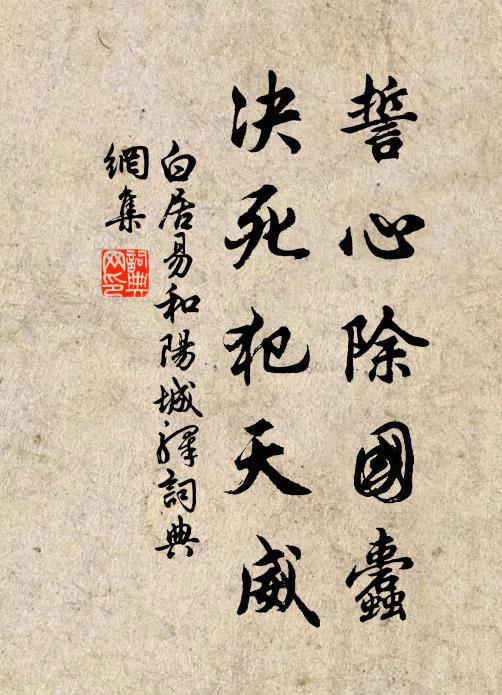 誓心除國蠹
决死犯天威
白居易和陽城驛詞典
網集
詞典
网印